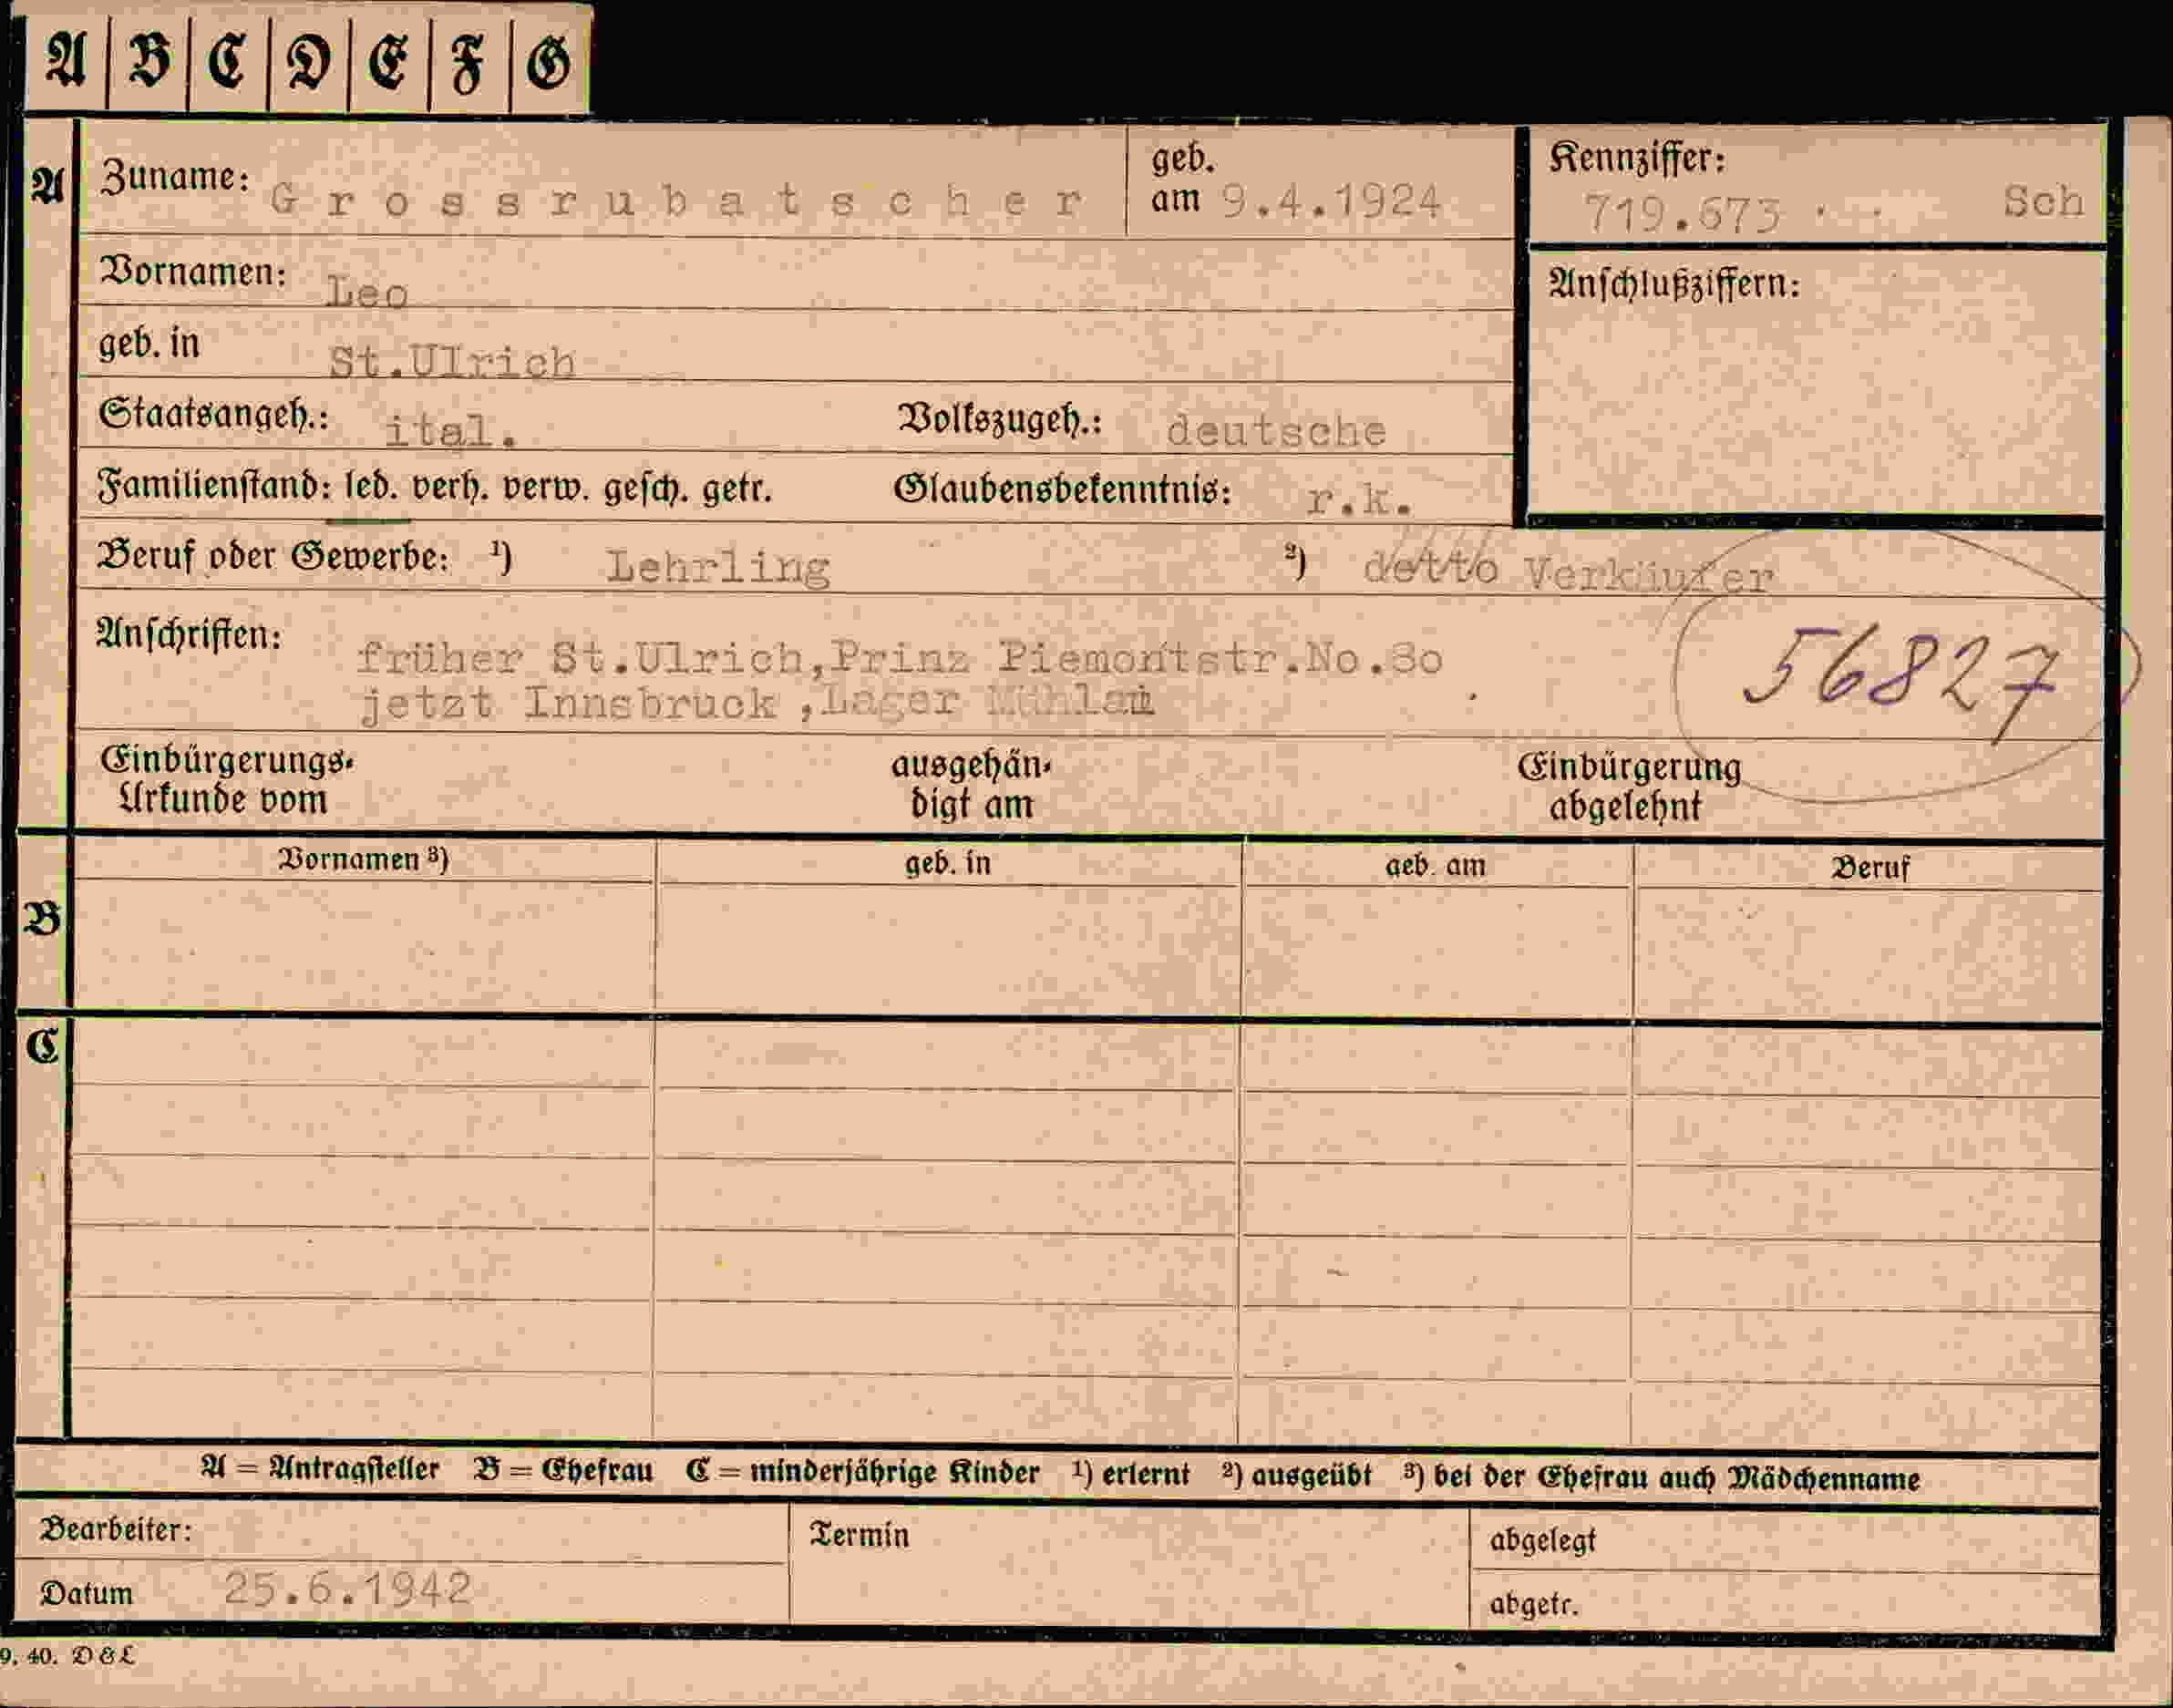 A B C D E F G
A
Zuname: Grossrubatscher geb. am 9.4.1924
Kennziffer: 719.673 Sch
Vornamen: Leo
Anschlußziffern:
geb. in St.Ulrich
Staatsangeh.: ital. Volkszugeh.: deutsche
Familienstand: led. verh. verw. gesch. getr. Glaubensbekenntnis: r.k.
Beruf oder Gewerbe: ¹) Lehrling ²) detto Verkäufer
Anschriften: früher St.Ulrich,Prinz Piemontstr.No.80
jetzt Innsbruck ,Lager
56827
Einbürgerungs-Urkunde vom ausgehändigt am Einbürgerung abgelehnt
B
Vornamen ³) geb. in geb. am Beruf
C
A = Antragsteller B = Ehefrau C = minderjährige Kinder ¹) erlernt ²) ausgeübt ³) bei der Ehefrau auch Mädchenname
Bearbeiter: Termin abgelegt
Datum 25.6.1942 abgetr.
9. 40. D & L